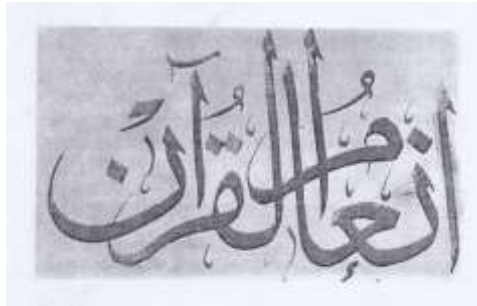 إنعامُ القُرآن